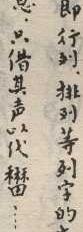 即行列、排列等列字的
只借其声以代𣡸…